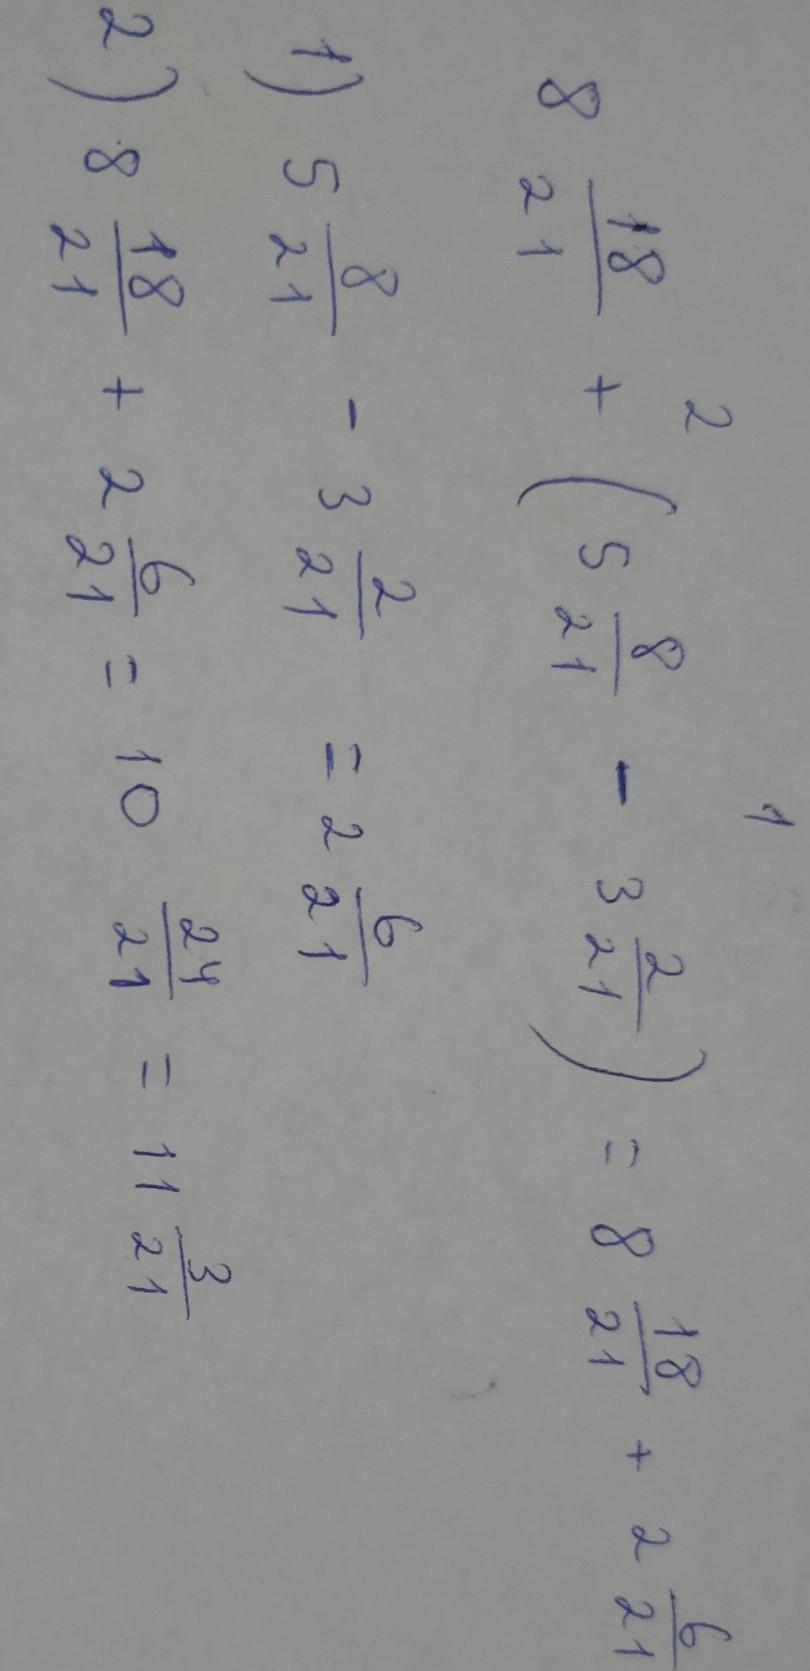 2 1
8 18/21 + (5 8/21 - 3 2/21) = 8 18/21 + 2 6/21
1) 5 8/21 - 3 2/21 = 2 6/21
2) 8 18/21 + 2 6/21 = 10 24/21 = 11 3/21